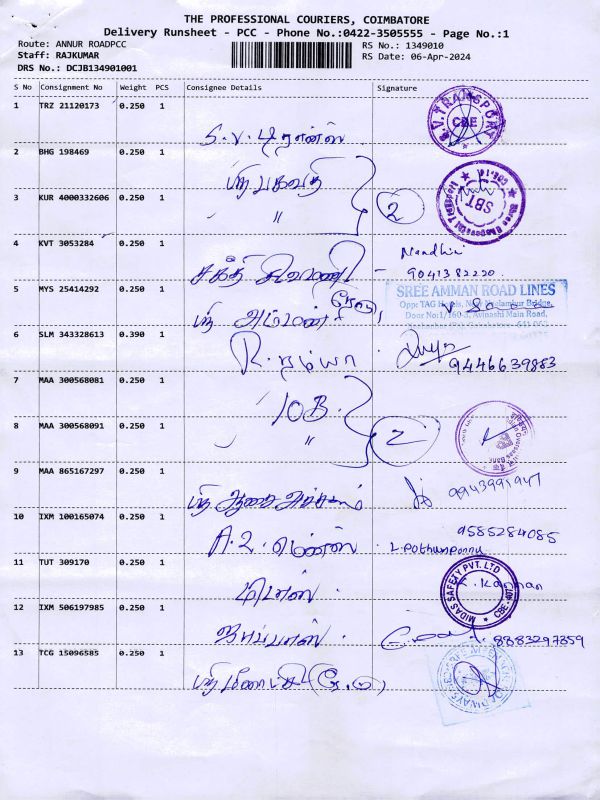 THE PROFESSIONAL COURIERS, COIMBATORE
Delivery Runsheet - PCC - Phone No.:0422-3505555 - Page No.:1
Route: ANNUR ROADPCC
RS No.: 1349010
Staff: RAJKUMAR
RS Date: 06-Apr-2024
DRS No.: DCJB134901001
S No Consignment No Weight PCS Consignee Details Signature
1 TRZ 21120173 0.250 1
S.V. டிரான்ஸ்
S.V.TRANSPORT CBE
2 BHG 198469 0.250 1
ஸ்ரீ பகவதி
SBT
3 KUR 4000332606 0.250 1
" 2
4 KVT 3053284 0.250 1
Nandhini
சக்தி
9041382220
5 MYS 25414292 0.250 1
SREE AMMAN ROAD LINES
Door No:1/160-3, Avinashi Main Road,
ஸ்ரீ அம்மன்
6 SLM 343328613 0.390 1
R. ரம்யா
9446639883
7 MAA 300568081 0.250 1
IOB.
8 MAA 300568091 0.250 1
" 2
9 MAA 865167297 0.250 1
ஸ்ரீ
9943991947
10 IXM 100165074 0.250 1
9585284085
A.L.
L. pothumponnu
11 TUT 309170 0.250 1
MIDAS SAFETY PVT. LTD
K. Kannan
12 IXM 506197985 0.250 1
8883297859
13 TCG 15096585 0.250 1
ஸ்ரீ மீனாட்சி